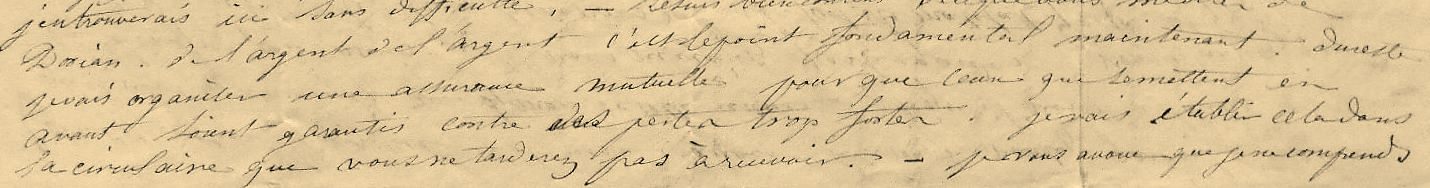 j'en trouverais ici sans difficulté, — Je suis bien content de ce que vous me dites de
Dorian. de l'argent de l'argent c'est le point fondamental maintenant. du reste
je vais organiser une assurance mutuelle pour que ceux qui se mettent en
avant soient garantis contre des pertes trop fortes. je vais établir cela dans
la circulaire que vous ne tarderez pas à recevoir. — je vous avoue que je ne comprends